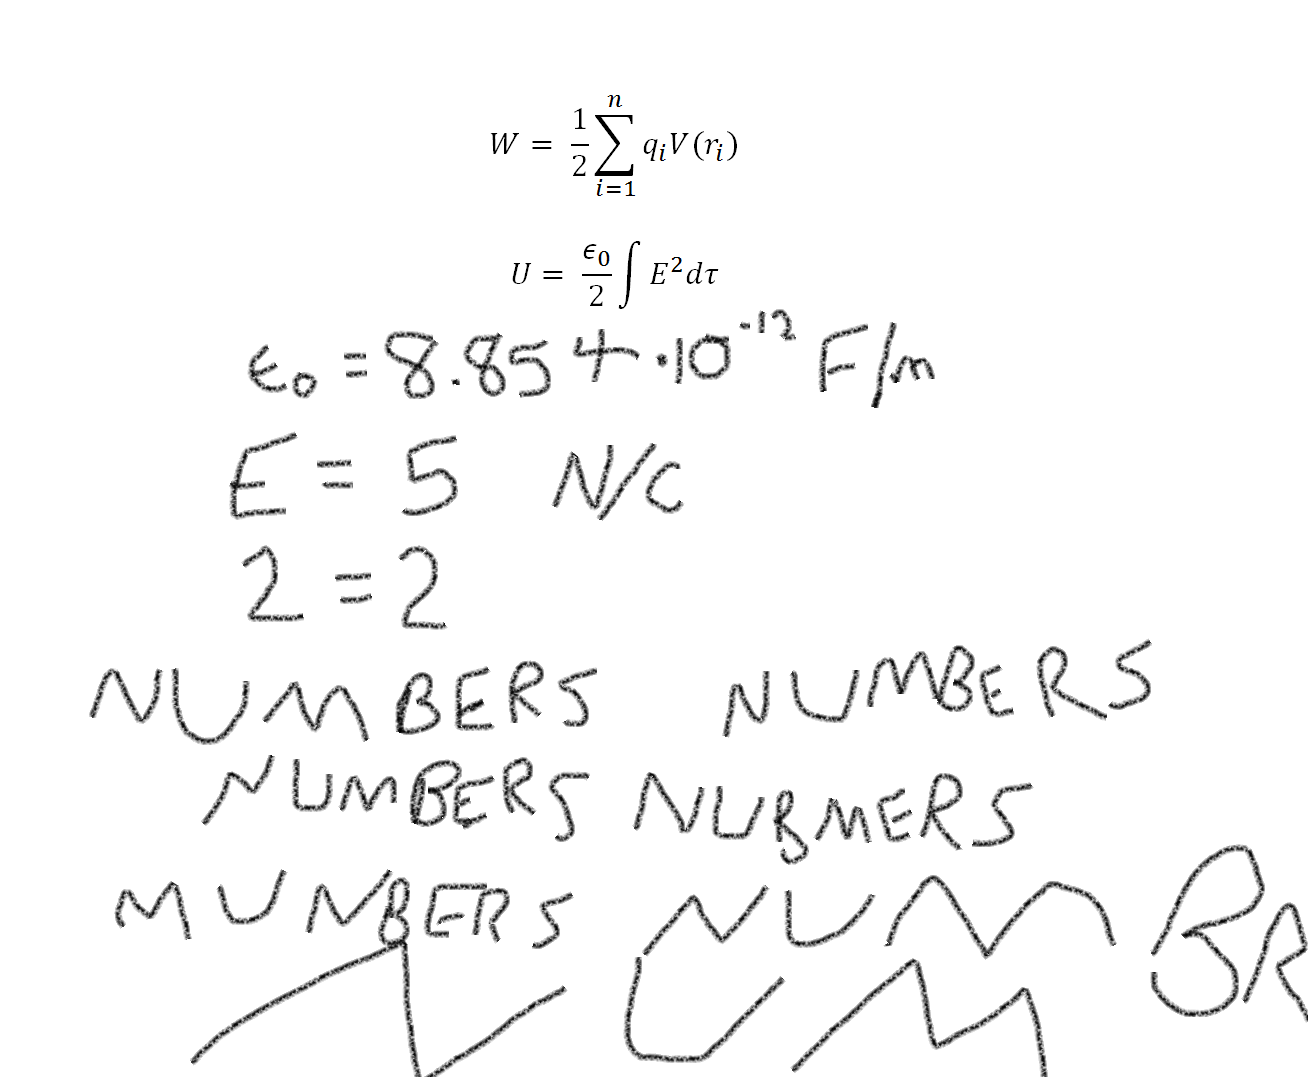 W = 1/2 ∑_{i=1}^{n} q_i V(r_i)
U = ϵ_0/2 ∫ E² dτ
ϵ_0 = 8.854 · 10^{-12} F/m
E = 5 N/C
2 = 2
NUMBERS NUMBERS
NUMBERS NUBMERS
MUNBERS NUMBR
NUM